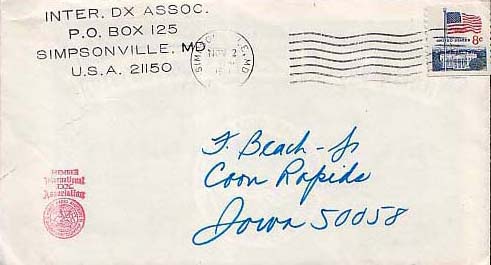 INTER. DX ASSOC.
P.O. BOX 125
SIMPSONVILLE, MD.
U.S.A. 21150
NOV 2
UNITED STATES 8c
F. Beach-Jr
Coon Rapids
Iowa 50058
MEMBER
International
DX
Association